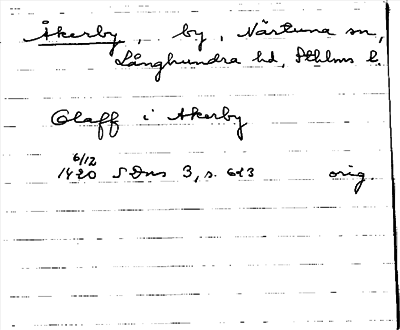 Åkerby, by, Närtuna sn,
Långhundra hd, Sthlms l.
Olaff i Akerby
6/12
1420 SDns 3, s. 623 orig.